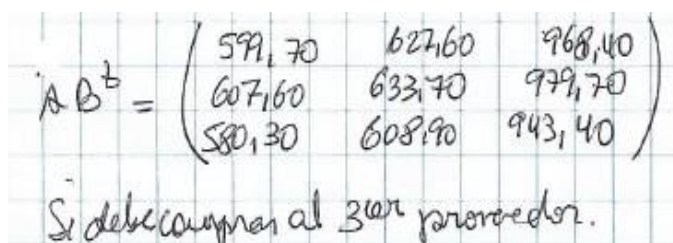 599,70 627,60 968,40
AB^t = 607,60 633,70 979,70
580,30 608,90 943,40
Si debe comprar al 3er proveedor.